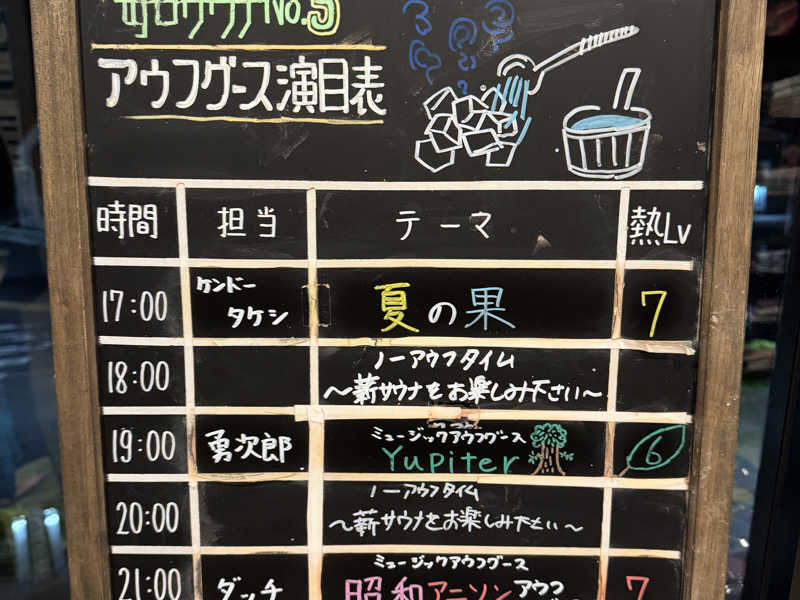 No.5
アウフグース演目表
時間 担当 テーマ 熱Lv
17:00 ケンドー タケシ 夏の果 7
18:00 ノーアウフタイム
～薪サウナをお楽しみ下さい～
19:00 勇次郎 ミュージックアウフグース
Yupiter 6
20:00 ノーアウフタイム
～薪サウナをお楽しみ下さい～
21:00 ダッチ ミュージックアウフグース
昭和アニソンアウフ 7